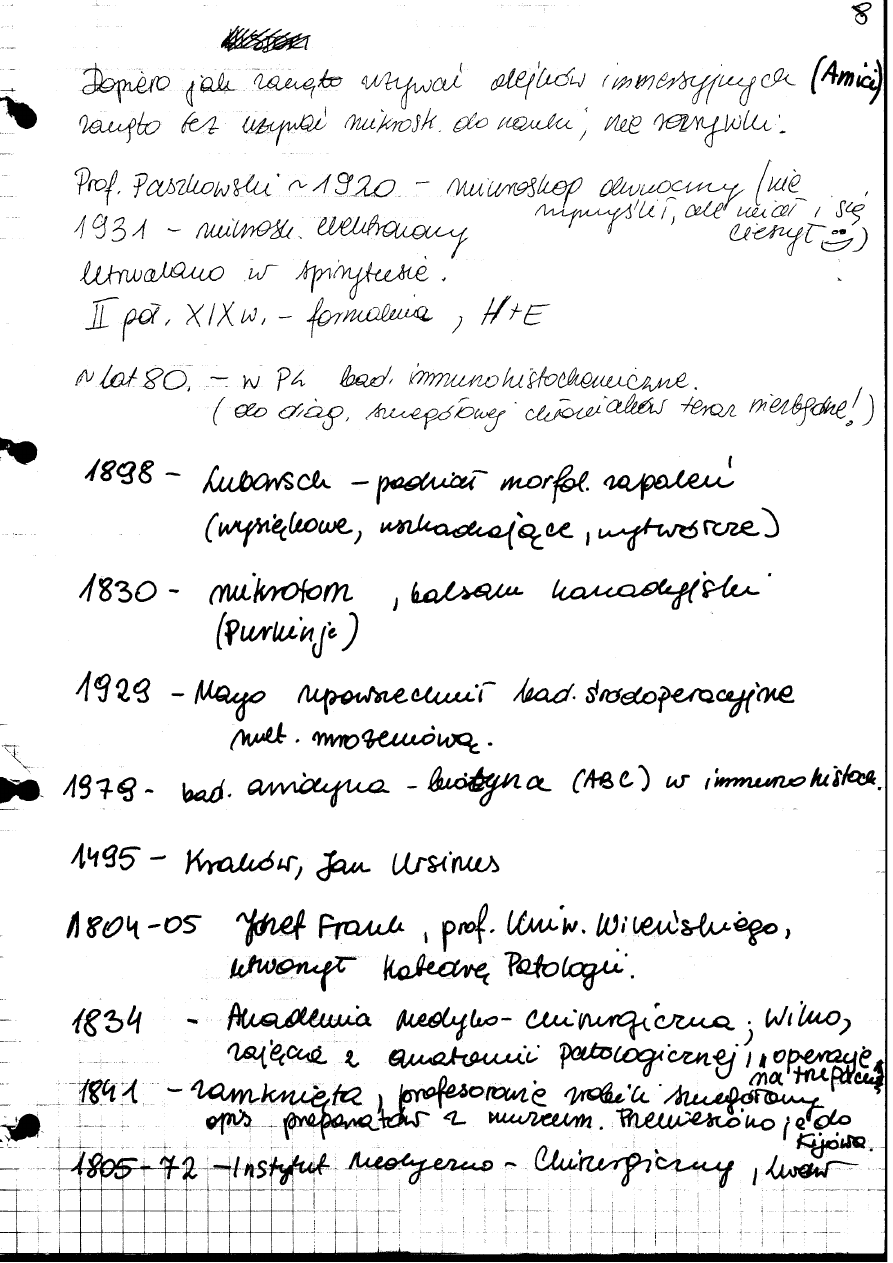 8
Dopiero jak zaczęto używać olejków immersyjnych (Amici)
zaczęto też używać mikrosk. do nauki, nie rozrywki.
Prof. Paszkowski ~ 1920 - mikroskop dwuoczny (nie
wymyślił, ale miał i się
1931 - mikrosk. elektronowy
cieszył )
Utrwalano w spirytusie.
II poł. XIX w. - formalina, H+E
~ lat 80. - w PL bad. immunohistochemiczne.
(do diag. szczegółowej chłoniaków teraz niezbędne!)
1898 - Lubarsch - podział morfol. zapaleń
(wysiękowe, uszkadzające, wytwórcze)
1830 - mikrotom, balsam kanadyjski
(Purkinje)
1929 - Mayo upowszechnił bad. śródoperacyjne
met. mrożeniową.
1979 - bad. awidyna - biotyna (ABC) w immunohistoch.
1495 - Kraków, Jan Ursinus
1804-05 Józef Frank, prof. Uniw. Wileńskiego,
utworzył Katedrę Patologii.
1834 - Akademia Medyko-Chirurgiczna, Wilno,
zajęcia z anatomii patologicznej i operacje
na trupach
1841 - zamknięta, profesorowie zrobili szczegółowy
opis preparatów z muzeum. Przeniesiono je do
Kijowa.
1805-72 - Instytut Medyczno-Chirurgiczny, Lwów